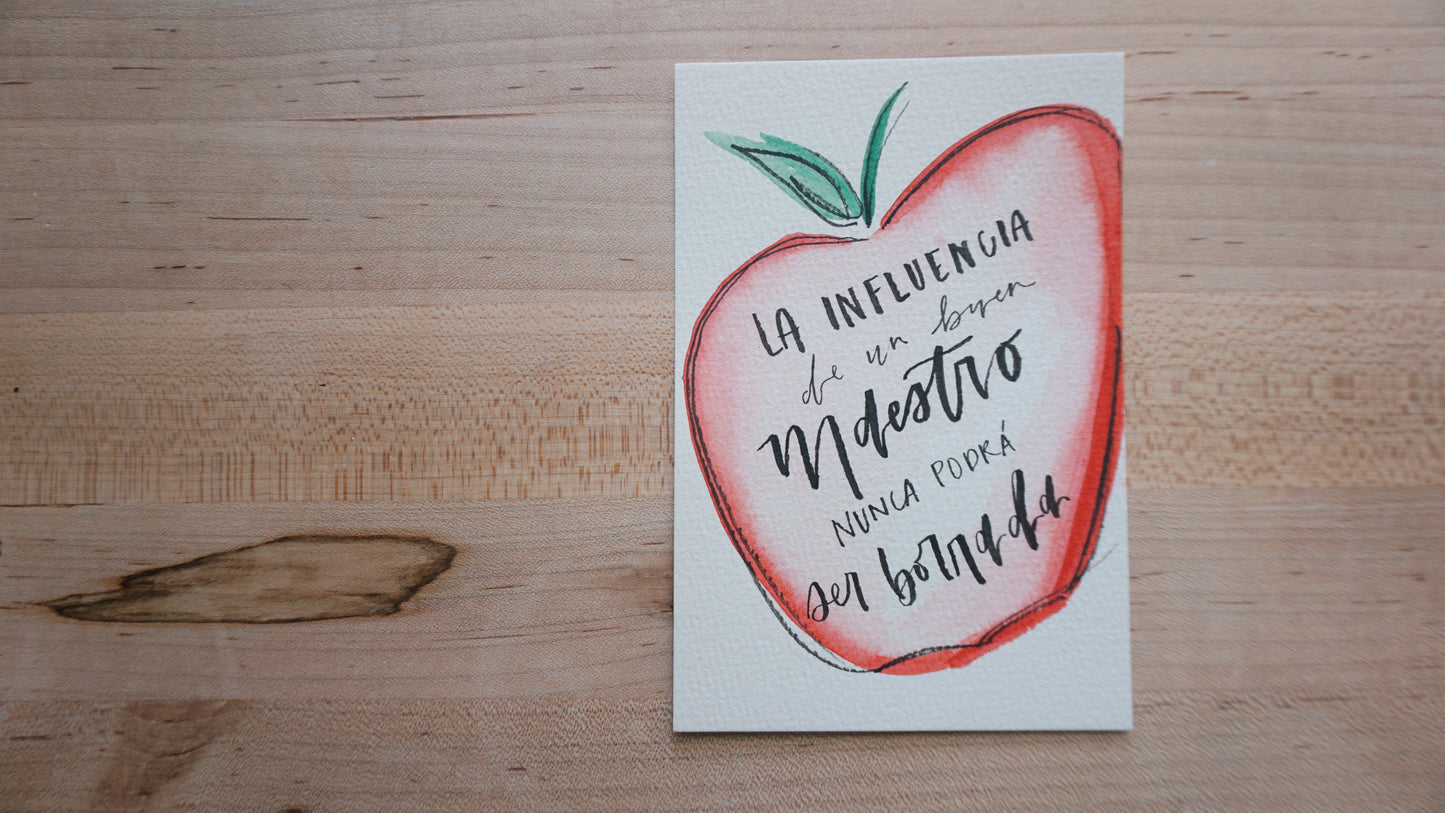 LA INFLUENCIA
de un buen
Maestro
NUNCA PODRÁ
ser borrada